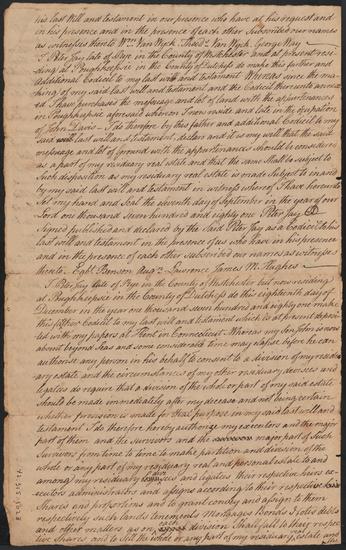 his last Will and testament in our presence who have at his request and
in his presence and in the presence of each other Subscribed our names
as witnesses thereto Wm. Van Wyck. Theods. Van Wyck. George Way
I Peter Jay late of Rye in the County of Westchester and at present resi
ding at Poughkeepsie in the County of Dutchess do make this further and
additional Codicil to my last will and testament Whereas since the ma
king of my said last will and testament and the Codicil thereunto annex
ed I have purchased the messuage and lot of land with the appurtenances
in Poughkeepsie aforesaid whereon I now reside late in the possession
of John Davis I do therefore by this further and additional Codicil to my
said last will and testament declare and it is my will that the said
messuage and lot of ground with the appurtenances should be considered
as a part of my residuary real estate and that the same shall be subject to
Such disposition as my residuary real estate is made Subject to in and
by my said last will and testament in witness whereof I have hereunto
Set my hand and Seal the seventh day of September in the year of our
Lord one thousand seven hundred and eighty one Peter Jay
Signed published and declared by the Said Peter Jay as a Codicil to his
last will and testament in the presence of us who have in his presence
and in the presence of each other subscribed our names as witnesses
thereto. Egbt. Benson Augs. Lawrence James M. Hughes
I Peter Jay late of Rye in the County of Westchester but now residing
at Poughkeepsie in the County of Dutchess do this eighteenth day of
December in the year one thousand seven hundred and eighty one make
this further Codicil to my last will and testament which is at present deposi
ted with my papers at Kent in Connecticut. Whereas my Son John is now
absent beyond Seas and some considerable time may elapse before he can
authorise any person in his behalf to consent to a division of my residu
ary estate and the circumstances of my other residuary devisees and
legatees do require that a division of the whole or part of my said estate
should be made immediately after my decease and not being certain
whether provision is made for that purpose in my said last will and
testament I do therefore hereby authorize my executors and the major
part of them and the survivors and the major part of Such
Survivors from time to time to make partition and division of the
whole or any part of my residuary real and personal estate to and
among my residuary devisees and legatees their respective heirs ex
ecutors administrators and assigns according to their respective
Shares and proportions and to grant convey and assign to them
respectively such lands tenements Mortgages Bonds Notes debts
and other matters as on each division Shall fall to their respec
tive shares and to sell the whole or any part of my residuary estate and